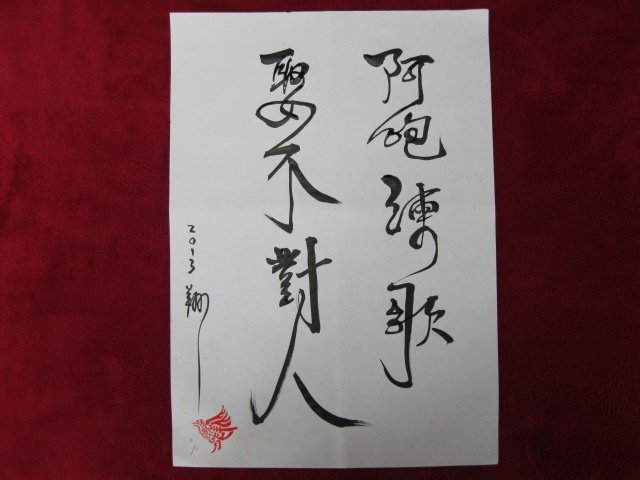 阿砲練歌
娶不對人
2013 翔